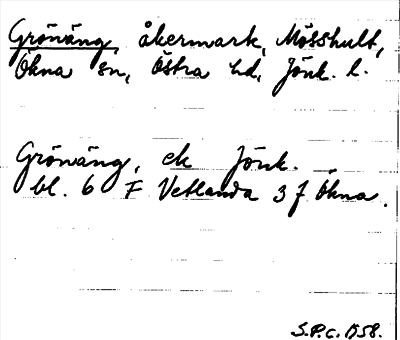 Grönäng, åkermark, Mösshult,
Ökna sn, Östra hd, Jönk. l.
Grönäng, ek Jönk.
bl. 6 F Vetlanda 3 f Ökna.
S.P.C. 1958.